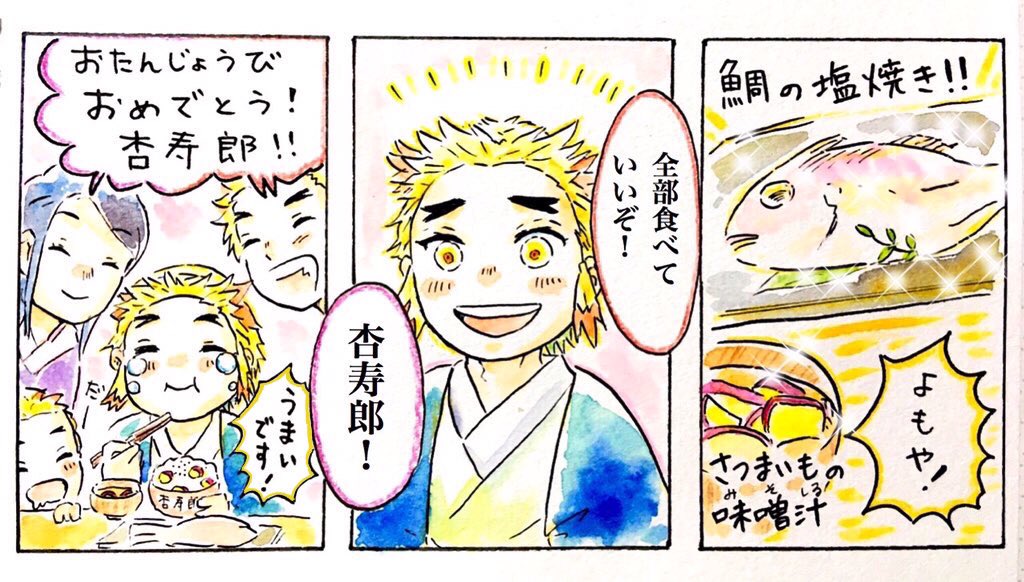 鯛の塩焼き!!
よもや!
さつまいもの
味噌汁
みそしる
全部食べて
いいぞ!
杏寿郎!
おたんじょうび
おめでとう!
杏寿郎!!
うまい
です!
だ
杏寿郎